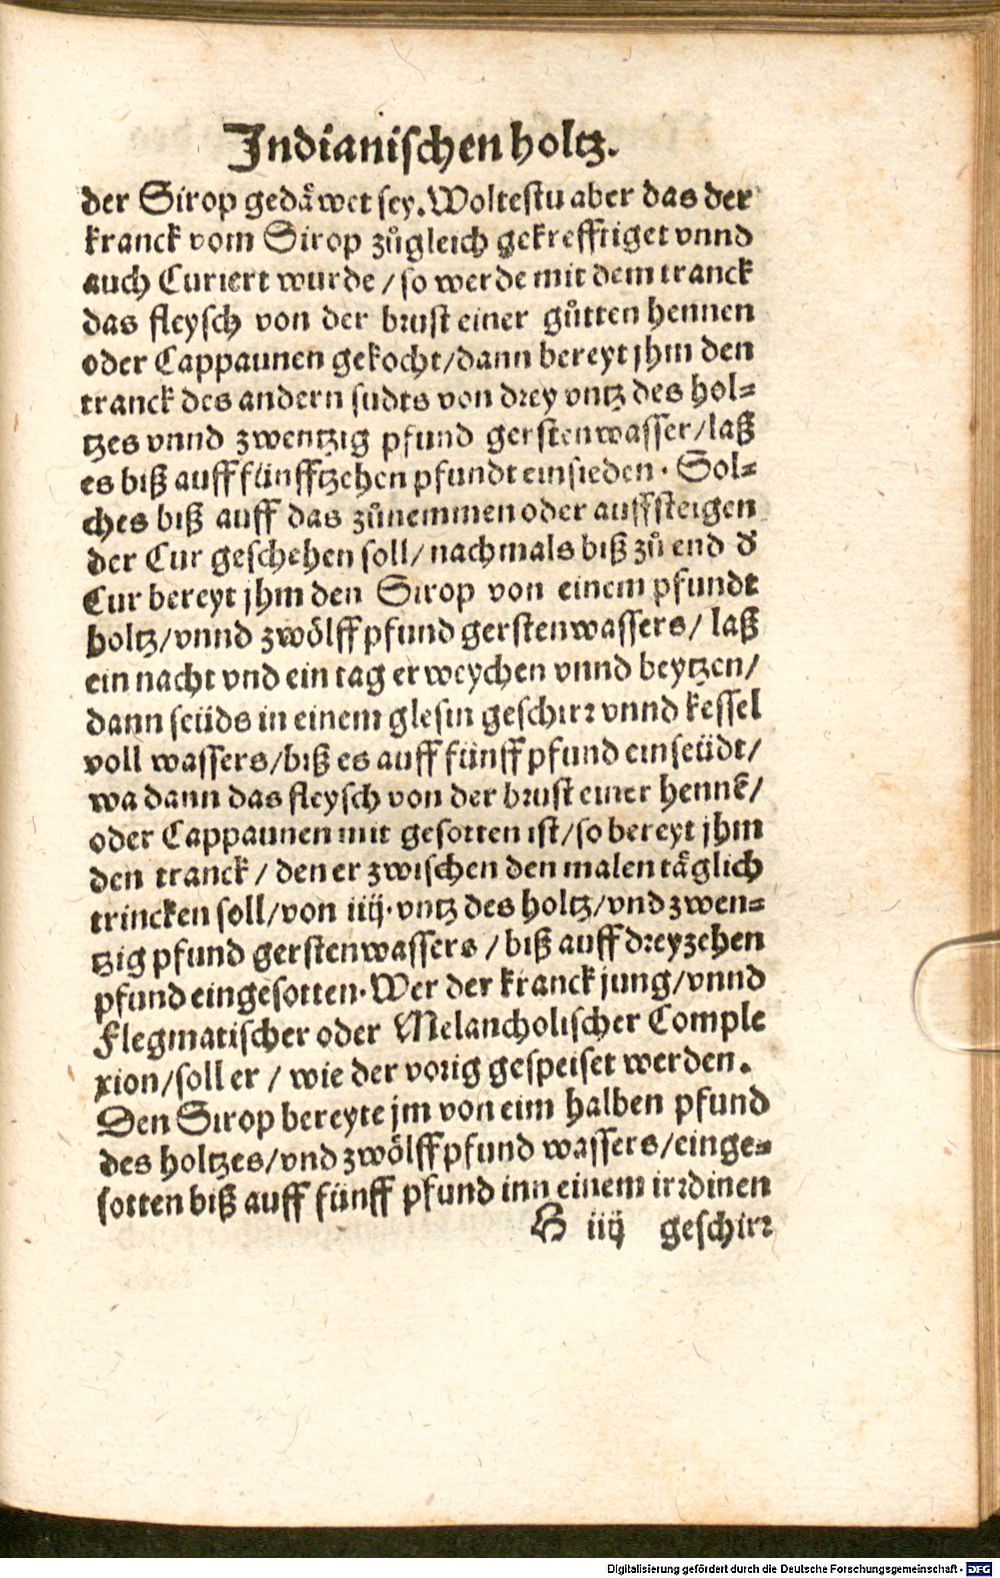 Indianischen holtz.
der Sirop gedäwet sey. Woltestu aber das der
kranck vom Sirop zůgleich gekrefftiget vnnd
auch Curiert wurde / so werde mit dem tranck
das fleysch von der brust einer gůtten hennen
oder Cappaunen gekocht / dann bereyt jhm den
tranck des andern sudts von drey vntz des hol⸗
tzes vnnd zwentzig pfund gerstenwasser / laß
es biß auff fünfftzehen pfundt einsieden. Sol⸗
ches biß auff das zůnemmen oder auffsteigen
der Cur geschehen soll / nachmals biß zů end d'
Cur bereyt jhm den Sirop von einem pfundt
holtz / vnnd zwölff pfund gerstenwassers / laß
ein nacht vnd ein tag erweychen vnnd beytzen /
dann seüds in einem glesin geschirr vnnd kessel
voll wassers / biß es auff fünff pfund einseüdt /
wa dann das fleysch von der brust einer henne /
oder Cappaunen mit gesotten ist / so bereyt jhm
den tranck / den er zwischen den malen täglich
trincken soll / von iiij. vntz des holtz / vnd zwen⸗
tzig pfund gerstenwassers / biß auff dreyzehen
pfund eingesotten. Wer der kranck jung / vnnd
Flegmatischer oder Melancholischer Comple
xion / soll er / wie der vorig gespeiset werden.
Den Sirop bereyte jm von eim halben pfund
des holtzes / vnd zwölff pfund wassers / einge⸗
sotten biß auff fünff pfund inn einem irrdinen
H iiij geschirr
Digitalisierung gefördert durch die Deutsche Forschungsgemeinschaft - DFG